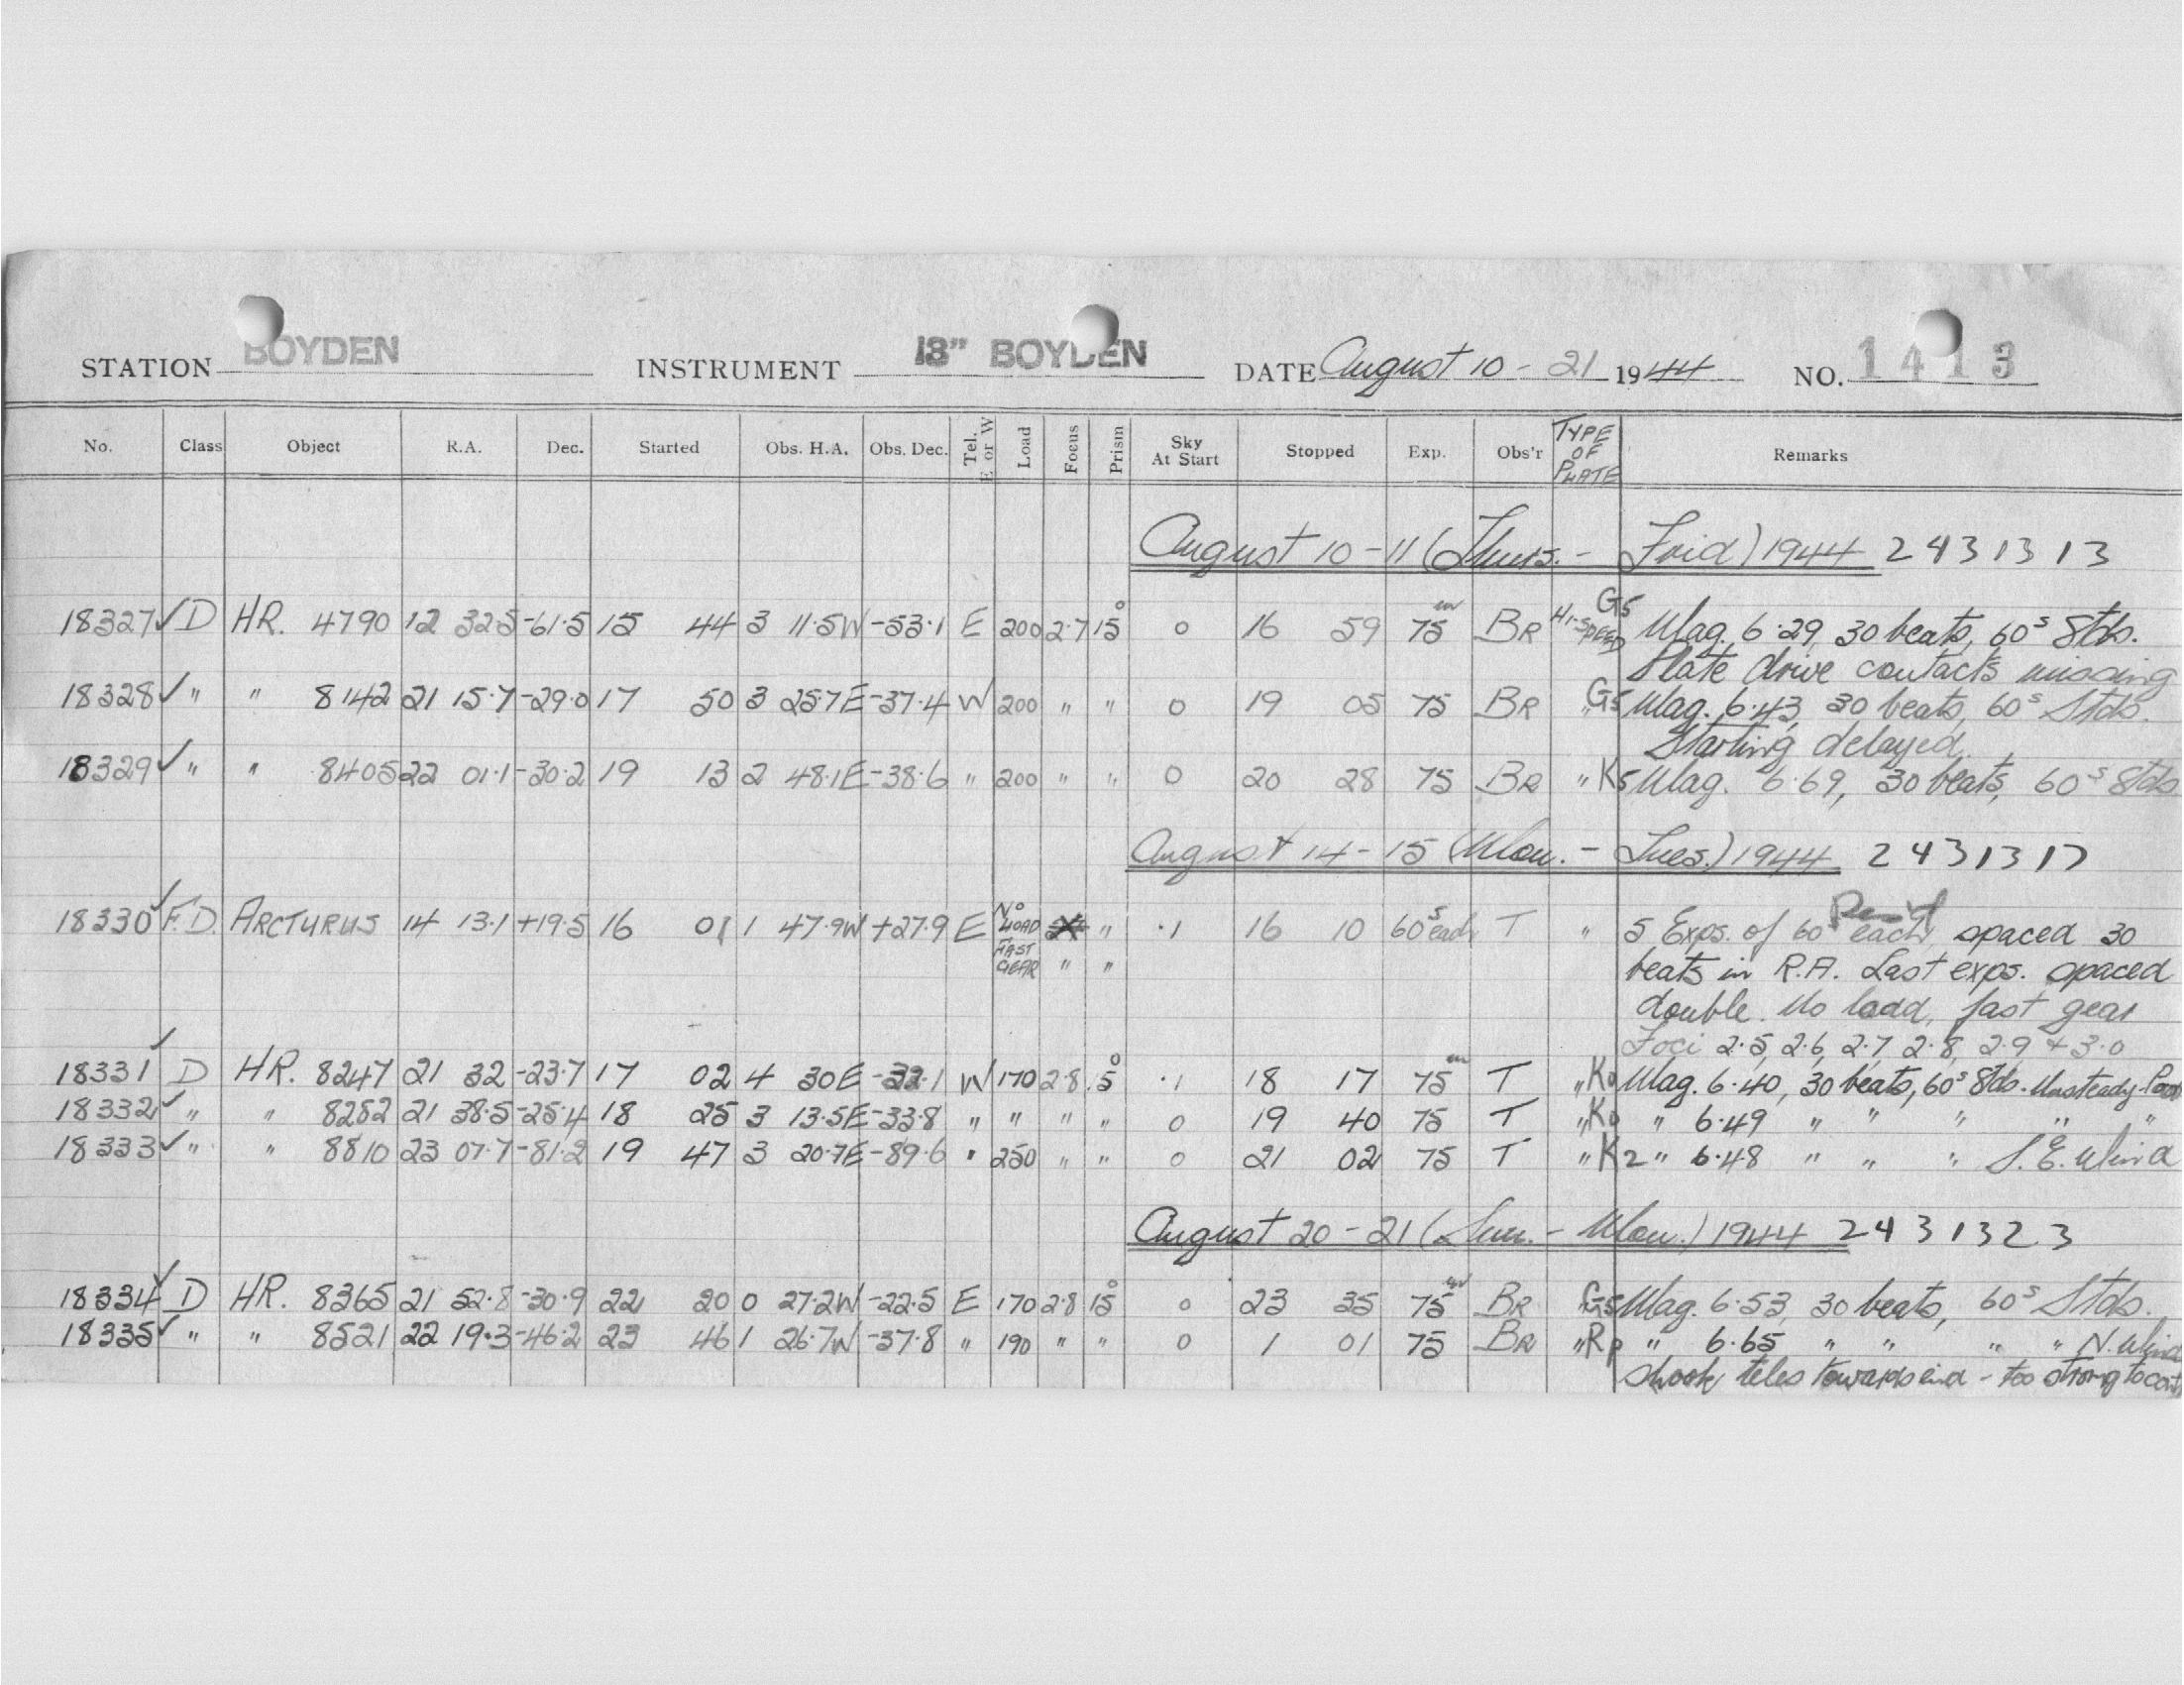 STATION BOYDEN INSTRUMENT 13" BOYDEN DATE August 10 - 21 1944 NO. 1413
No. Class Object R.A. Dec. Started Obs. H.A. Obs. Dec. Tel. E or W Load Focus Prism Sky At Start Stopped Exp. Obs'r TYPE OF PLATE Remarks
August 10-11 (Thurs. - Frid) 1944 2431313
18327 ✓ D HR. 4790 12 32.5 -61.5 15 44 3 11.5W -53.1 E 200 2.7 15° 0 16 59 75m BR HI-SPEED G5 Mag. 6.29, 30 beats, 60s Stds.
Plate drive contacts missing
18328 ✓ " " 8142 21 15.7 -29.0 17 50 3 25.7E -37.4 W 200 " " 0 19 05 75 BR " G5 Mag. 6.43, 30 beats, 60s Stds.
Starting delayed.
18329 ✓ " " 8405 22 01.1 -30.2 19 13 2 48.1E -38.6 " 200 " " 0 20 28 75 BR " K5 Mag. 6.69, 30 beats, 60s Stds
August 14-15 (Mon. - Tues.) 1944 2431317
18330 ✓ F.D. ARCTURUS 14 13.1 +19.5 16 01 1 47.9W +27.9 E NO LOAD " .1 16 10 60s each T " 5 Exps. of 60s each, spaced 30
FAST GEAR " " beats in R.A. Last exps. spaced
double. No load, fast gear
Foci 2.5, 2.6, 2.7, 2.8, 2.9 + 3.0
18331 ✓ D HR. 8247 21 32 -23.7 17 02 4 30E -32.1 W 170 2.8 15° .1 18 17 75m T " K0 Mag. 6.40, 30 beats, 60s Stds. Unsteady. Poor
18332 ✓ " " 8282 21 38.5 -25.4 18 25 3 13.5E -33.8 " " " " 0 19 40 75 T " K0 " 6.49 " " " " "
18333 ✓ " " 8810 23 07.7 -81.2 19 47 3 20.7E -89.6 " 250 " " 0 21 02 75 T " K2 " 6.48 " " " S.E. Wind
August 20-21 (Sun. - Mon.) 1944 2431323
18334 ✓ D HR. 8365 21 52.8 -30.9 22 20 0 27.2W -22.5 E 170 2.8 15° 0 23 35 75m BR G5 Mag. 6.53, 30 beats, 60s Stds.
18335 ✓ " " 8521 22 19.3 -46.2 23 46 1 26.7W -37.8 " 190 " " 0 1 01 75 BR " Rp " 6.65 " " " " N. Wind
shook teles towards end - too strong to